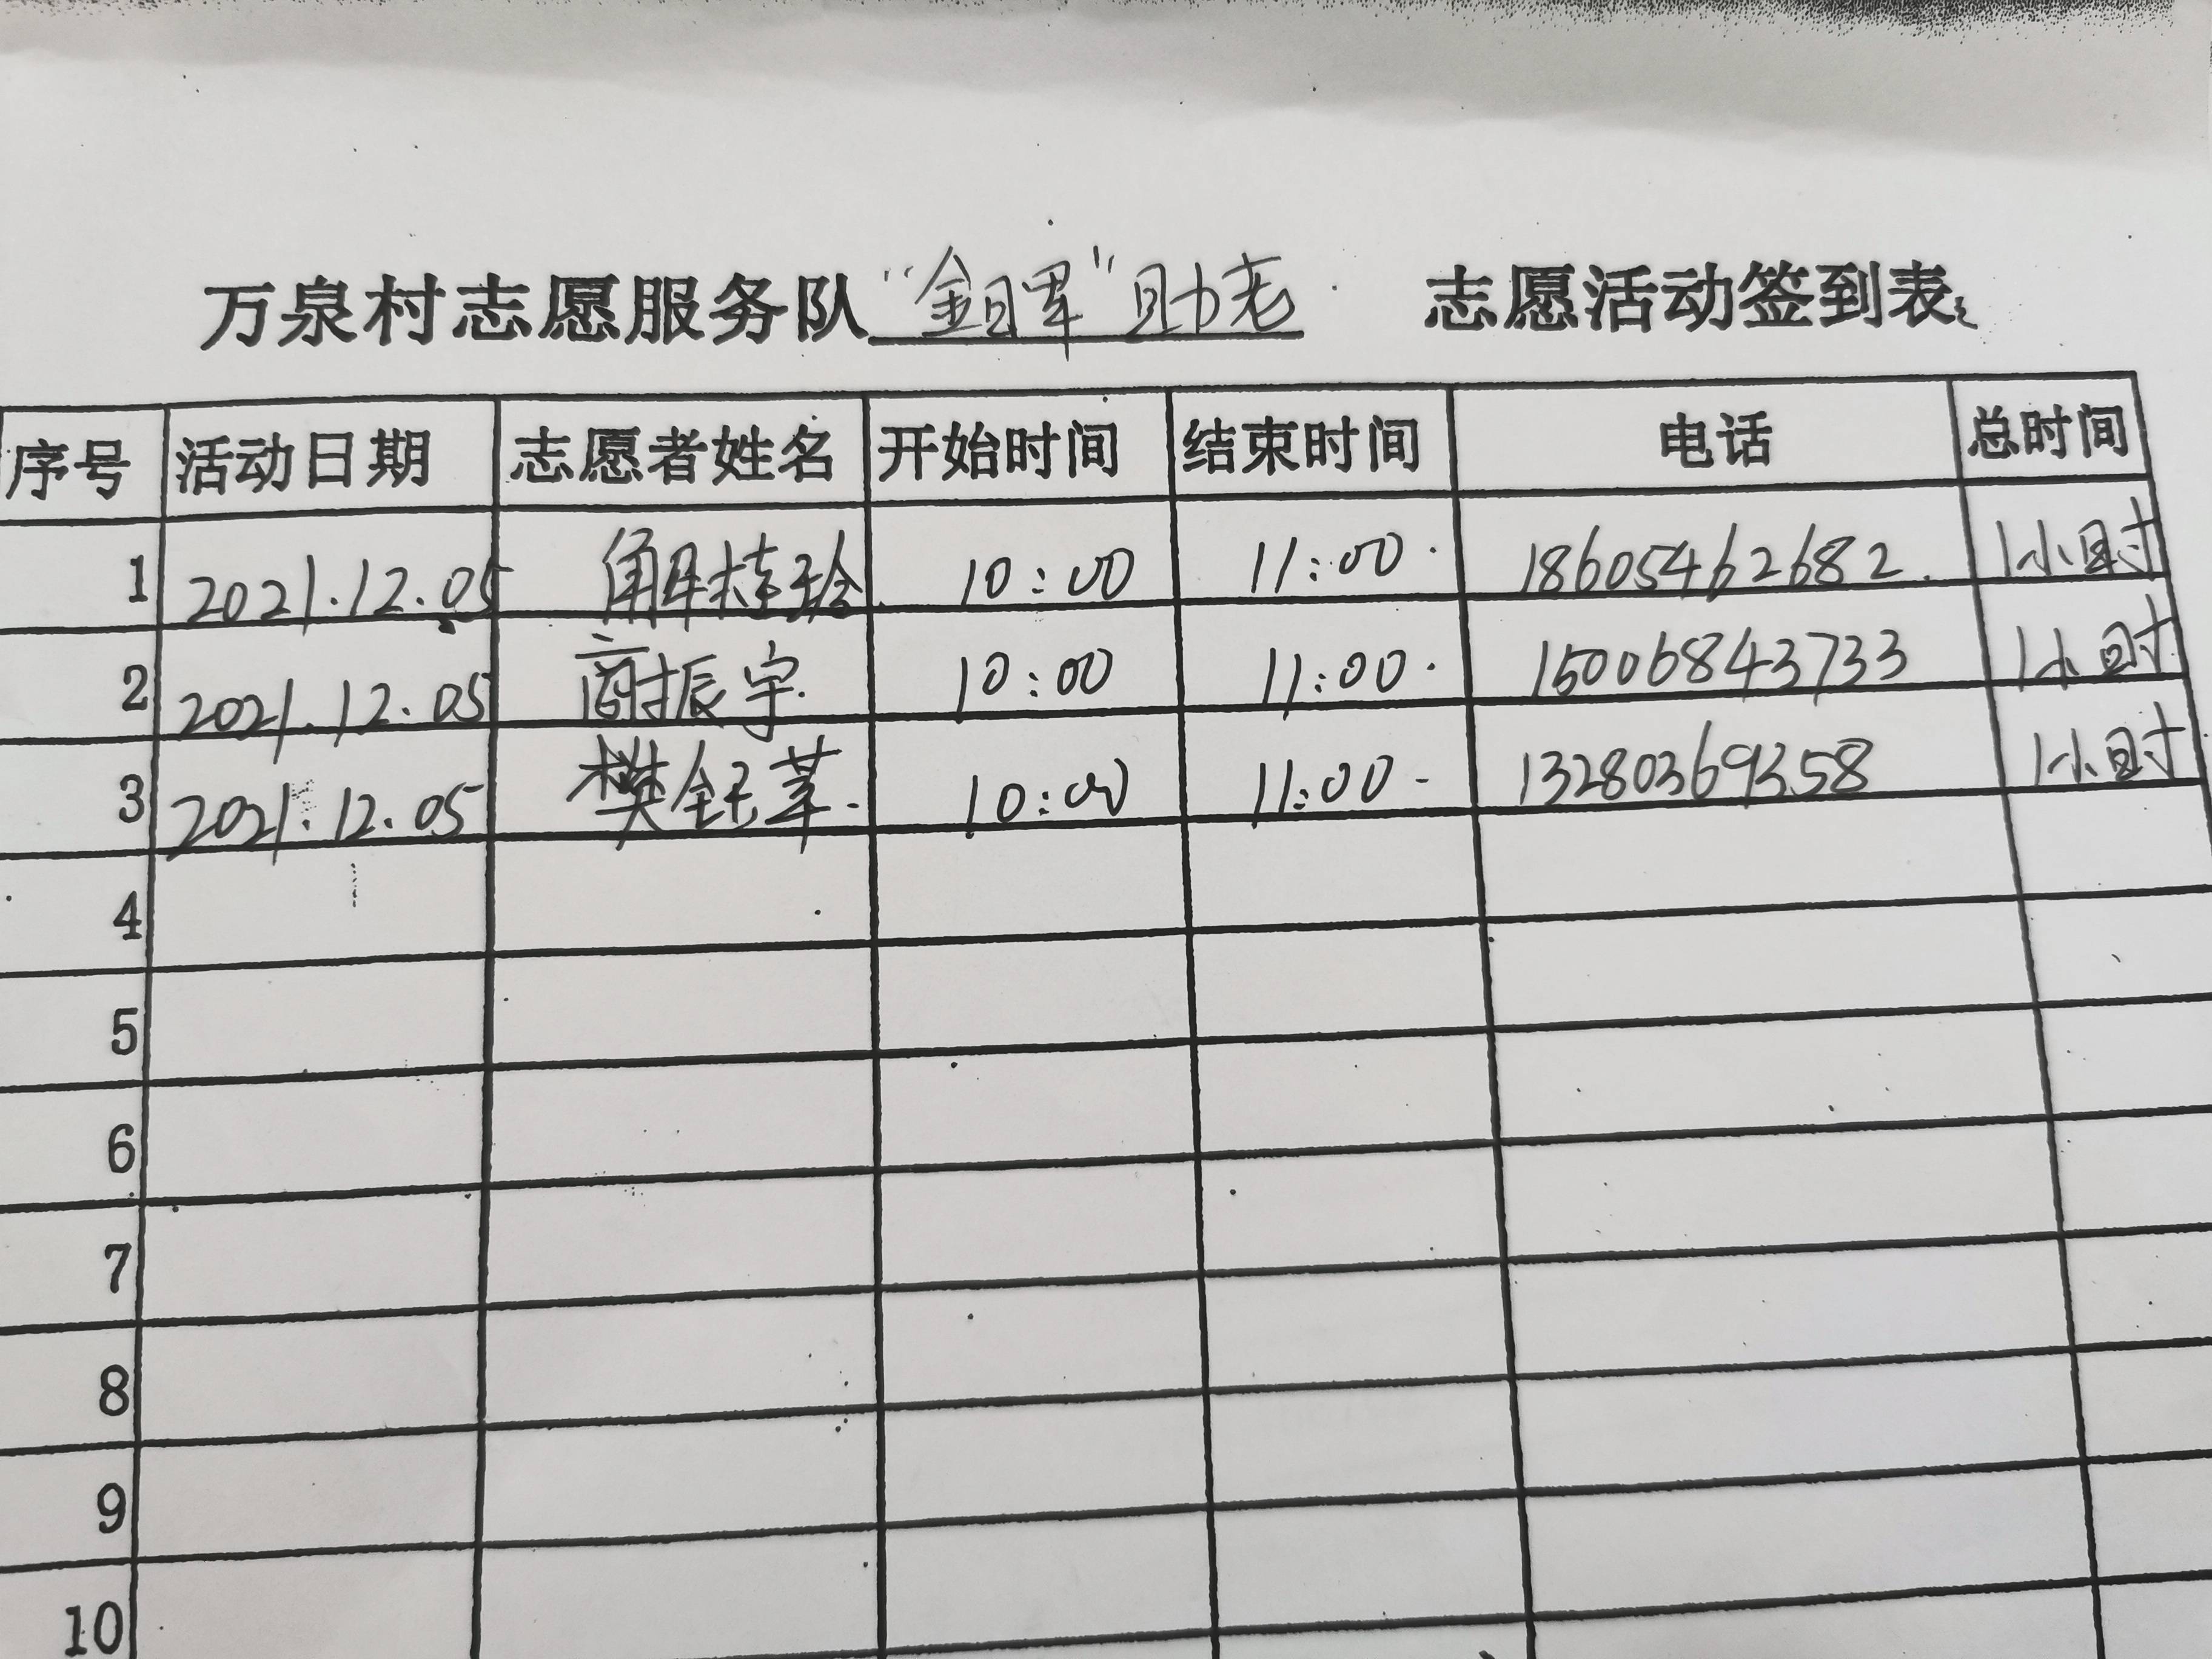 万泉村志愿服务队“金晖”助老 志愿活动签到表
序号 活动日期 志愿者姓名 开始时间 结束时间 电话 总时间
1 2021.12.05 解桂玲 10:00 11:00 18605462682 1小时
2 2021.12.05 商振宇 10:00 11:00 15006843733 1小时
3 2021.12.05 樊钰苹 10:00 11:00 13280369358 1小时
4
5
6
7
8
9
10